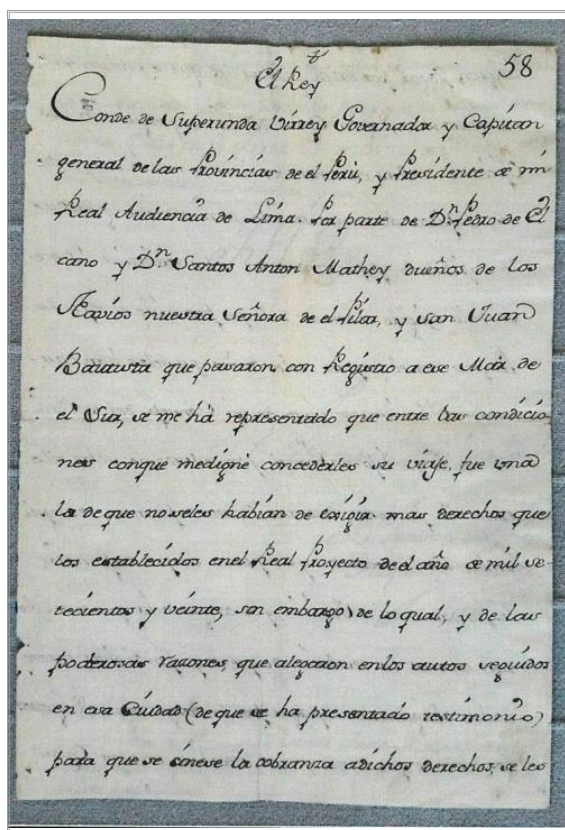 58
El Rey
Conde de Superunda Virrey Governador y Capitan
general de las Provincias de el Perù, y Presidente de mi
Real Audiencia de Lima. Por parte de Dn. Pedro de El
cano y Dn. Santos Anton Mathey dueños de los
Navios nuestra Señora de el Pilar, y San Juan
Bautista que pasaron con Registro a ese Mar de
el Sur, se me hà representado que entre las condicio
nes conque medignè concederles su viaje, fue una
la de que noseles habían de exigir mas derechos que
los establecidos enel Real Proyecto de el año de mil se-
tecientos y veinte, sin embargo de lo qual, y de las
poderosas razones, que alegaron enlos autos seguidos
en esa Ciudad (de que se ha presentado testimonio)
para que se ciñese la cobranza adichos derechos, se les